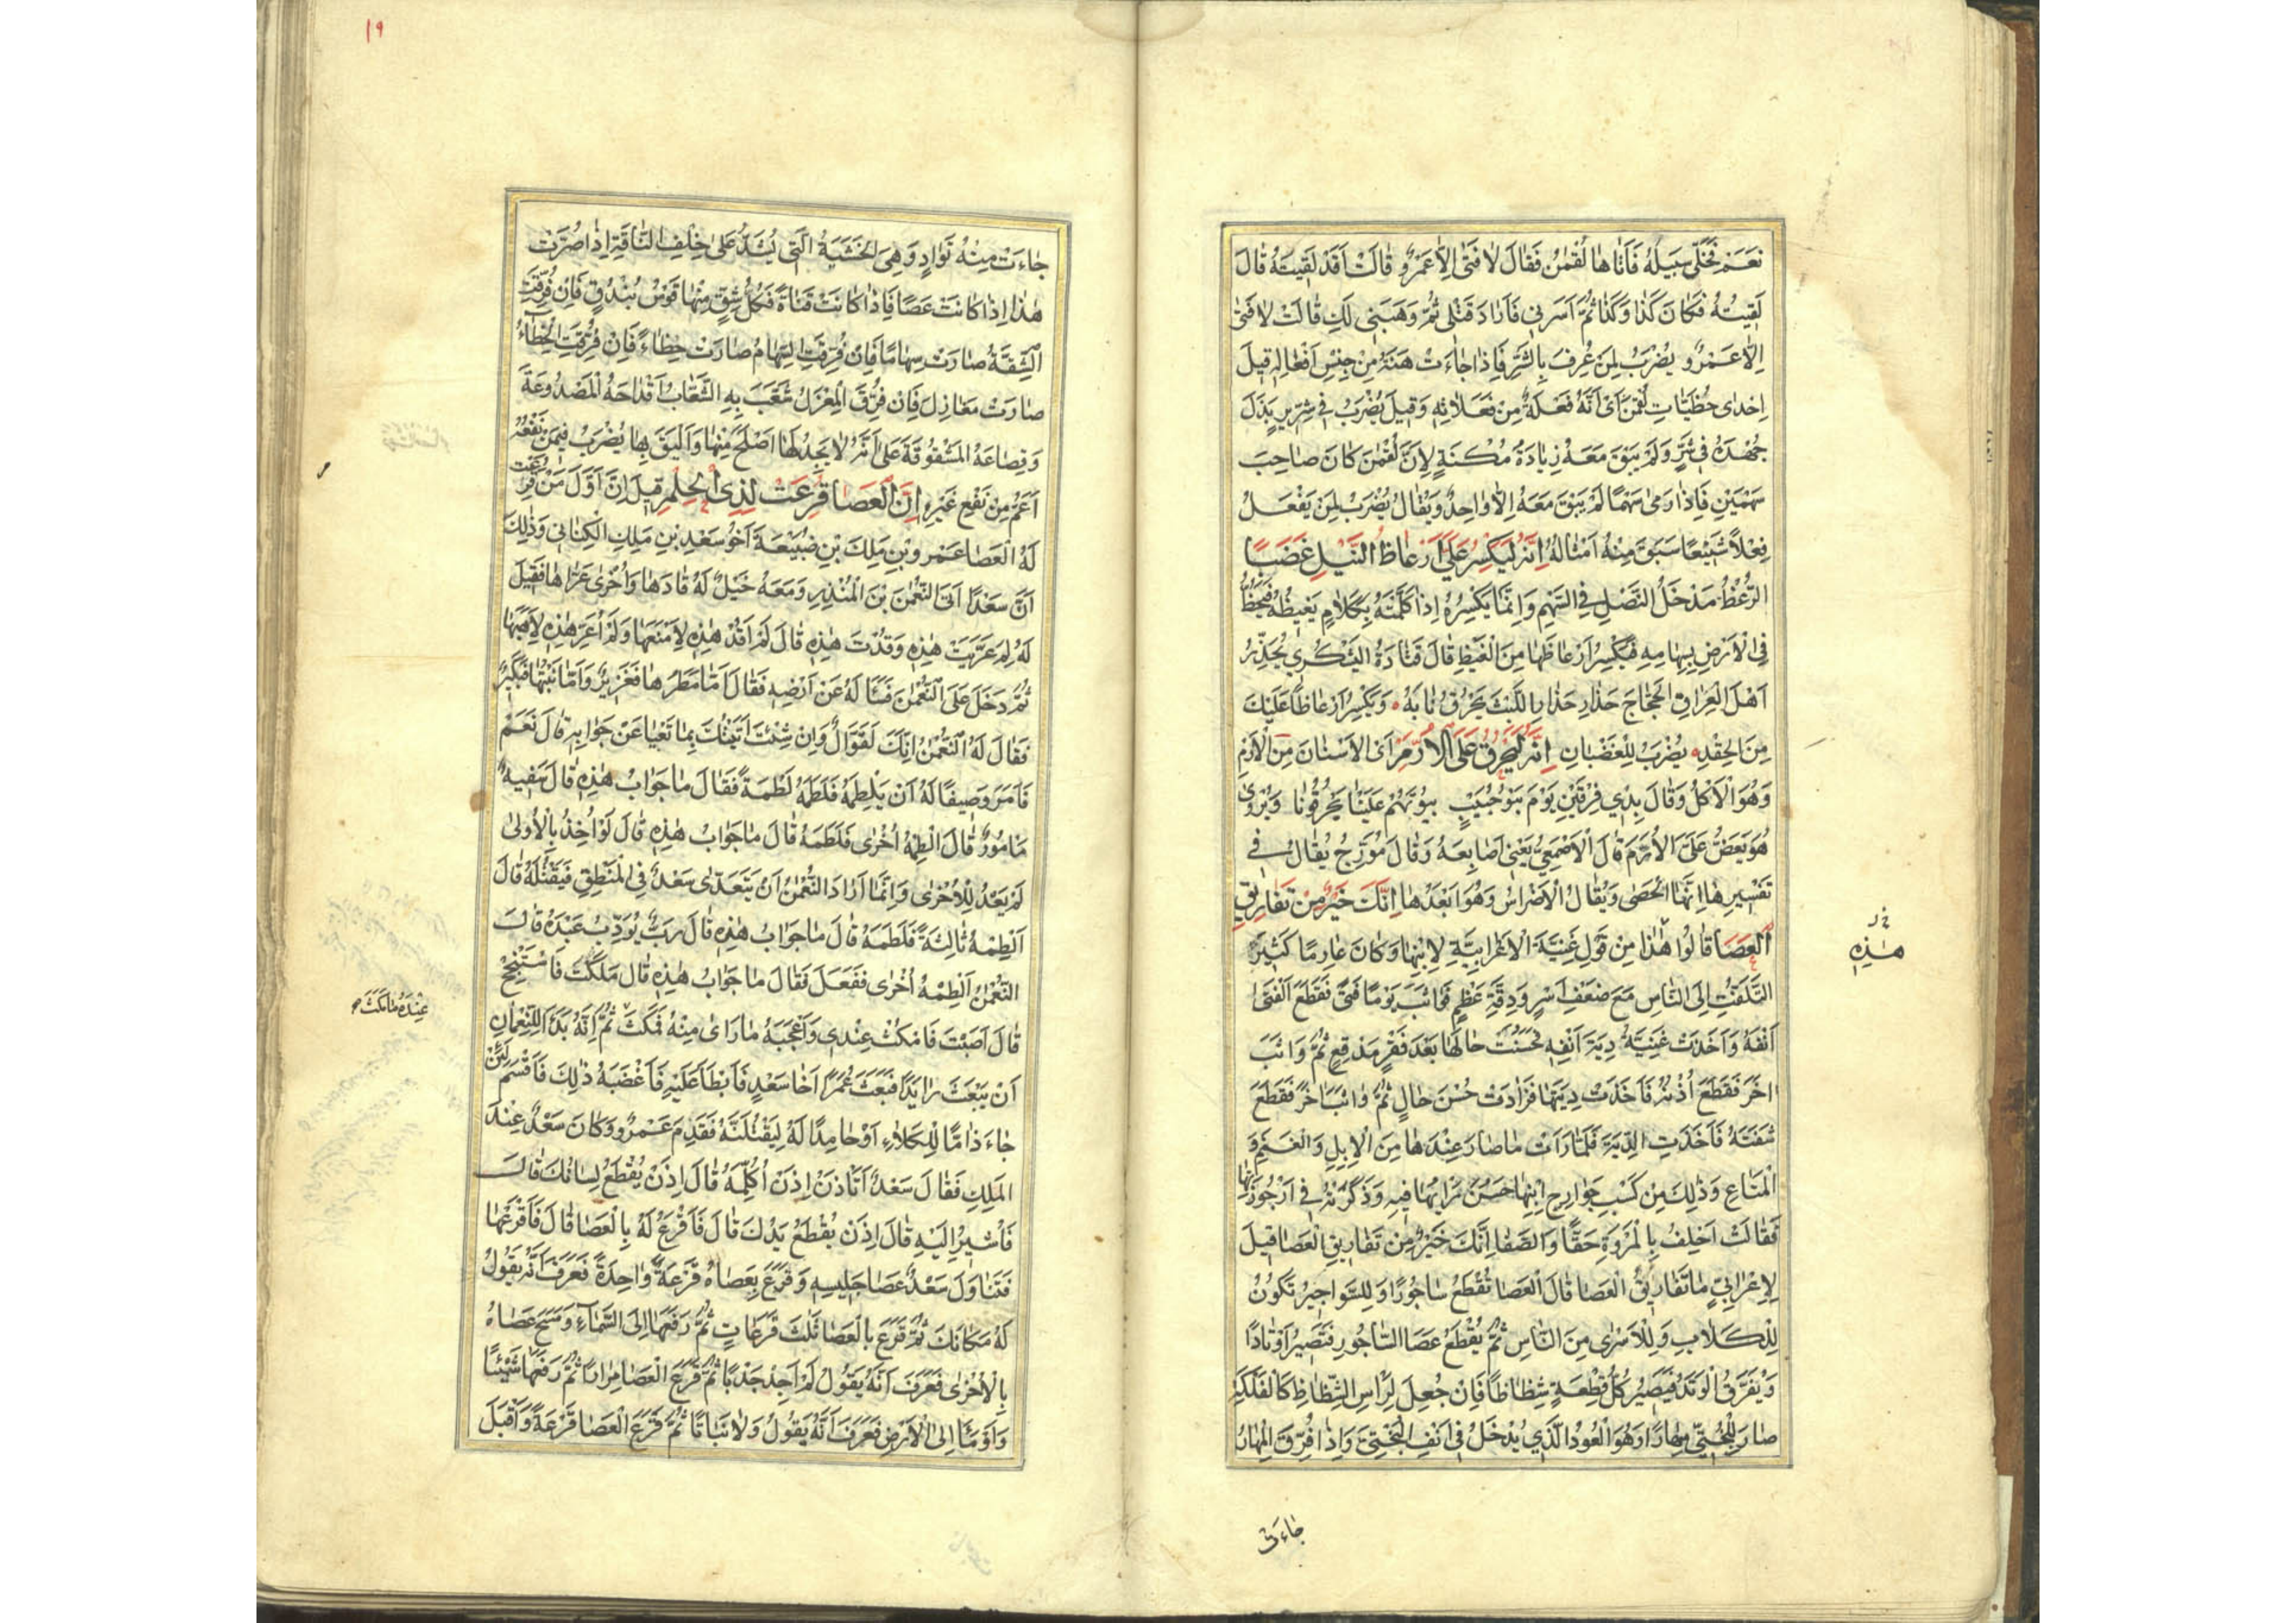 نَعَمْ فَخَلّٰى سَبِيلَهُ فَأَتَاهَا لُقْمٰنُ فَقَالَ لَا فَتٰى اِلَّا عَمْرٌو قَالَتْ اَقَدْ لَقِيتَهُ قَالَ
لَقِيتُهُ فَكَانَ كَذَا وَكَذَا ثُمَّ اَسَرَنِي فَاَرَادَ قَتْلِي ثُمَّ وَهَبَنِي لَكِ قَالَتْ لَا فَتٰى
اِلَّا عَمْرٌو يُضْرَبُ لِمَنْ عُرِفَ بِالشَّرِّ فَاِذَا جَاءَتْ هَنَةٌ مِنْ جِنْسِ اَفْعَالِهِ قِيلَ
اِحْدٰى حُظَيَّاتِ لُقْمٰنَ اَىْ اَنَّهُ فَعْلَةٌ مِنْ فَعَلَاتِهِ وَقِيلَ يُضْرَبُ فِي شِرِّيرٍ بَذَلَ
جُهْدَهُ فِي شَرٍّ وَلَمْ يَبْقَ مَعَهُ زِيَادَةُ مُكْنَةٍ لِاَنَّ لُقْمٰنَ كَانَ صَاحِبَ
سَهْمَيْنِ فَاِذَا رَمٰى سَهْمًا لَمْ يَبْقَ مَعَهُ اِلَّا وَاحِدٌ وَيُقَالُ يُضْرَبُ لِمَنْ يَفْعَلُ
فِعْلًا شَنِيعًا سَبَقَ مِنْهُ اَمْثَالُهُ اِنَّهُ لَيَكْسِرُ عَلَىَّ اَرْعَاظَ النَّبْلِ غَضَبًا
الرُّعْظُ مَدْخَلُ النَّصْلِ فِي السَّهْمِ وَاِنَّمَا يَكْسِرُهُ اِذَا كَلَّمْتَهُ بِكَلَامٍ يَغِيظُهُ فَيَخُطُّ
فِي الْاَرْضِ بِسِهَامِهِ فَيَكْسِرُ اَرْعَاظَهَا مِنَ الْغَيْظِ قَالَ قَتَادَةُ الْيَشْكُرِي يُحَذِّرُ
اَهْلَ الْعِرَاقِ الْحَجَّاجَ حَذَارِ حَذَارِ اللَّيْثَ يَحْرُقُ نَابَهُ ۰ وَيَكْسِرُ اَرْعَاظًا عَلَيْكَ
مِنَ الْحِقْدِ ۰ يُضْرَبُ لِلْغَضْبَانِ اِنَّهُ لَيَحْرُقُ عَلَىَّ الْاُرَّمَ اَىْ الْاَسْنَانَ مِنَ الْاَرْمِ
وَهُوَ الْاَكْلُ وَقَالَ بِذِي فِرْقَيْنِ يَوْمَ بَنُو حُبَيْبٍ نُيُوبَهُمْ عَلَيْنَا يَحْرُقُونَا وَيُرْوٰى
هُوَ يَعَضُّ عَلَىَّ الْاُرَّمَ قَالَ الْاَصْمَعِيُّ يَعْنِي اَصَابِعَهُ وَقَالَ مُؤَرِّجُ يُقَالُ فِي
تَفْسِيرِهَا اِنَّهَا الْحَصٰى وَيُقَالُ الْاَضْرَاسُ وَهُوَ اَبْعَدُهَا اِنَّكَ خَيْرٌ مِنْ تَفَارِيقِ
الْعَصَا قَالُوا هٰذَا مِنْ قَوْلِ غَنِيَّةَ الْاَعْرَابِيَّةِ لِابْنِهَا وَكَانَ عَارِمًا كَثِيرَ
التَّلَفُّتِ اِلَى النَّاسِ مَعَ ضَعْفِ اَسْرٍ وَدِقَّةِ عَظْمٍ فَوَاثَبَ يَوْمًا فَتًى فَقَطَعَ الْفَتٰى
اَنْفَهُ وَاَخَذَتْ غَنِيَّةُ دِيَةَ اَنْفِهِ فَحَسُنَتْ حَالُهَا بَعْدَ فَقْرٍ مُدْقِعٍ ثُمَّ وَاثَبَ
اٰخَرَ فَقَطَعَ اُذُنَهُ فَاَخَذَتْ دِيَتَهَا فَزَادَتْ حُسْنَ حَالٍ ثُمَّ وَاثَبَ اٰخَرَ فَقَطَعَ
شَفَتَهُ فَاَخَذَتِ الدِّيَةَ فَلَمَّا رَاَتْ مَا صَارَ عِنْدَهَا مِنَ الْاِبِلِ وَالْغَنَمِ وَ
الْمَتَاعِ وَذٰلِكَ مِنْ كَسْبِ جَوَارِحِ ابْنِهَا حَسُنَ رَأْيُهَا فِيهِ وَذَكَرَتْهُ فِي اُرْجُوزَتِهَا
فَقَالَتْ اَحْلِفُ بِالْمَرْوَةِ حَقًّا وَالصَّفَا اِنَّكَ خَيْرٌ مِنْ تَفَارِيقِ الْعَصَا قِيلَ
لِاَعْرَابِيٍّ مَا تَفَارِيقُ الْعَصَا قَالَ الْعَصَا تُقْطَعُ سَاجُورًا وَالسَّوَاجِيرُ تَكُونُ
لِلْكِلَابِ وَلِلْاَسْرٰى مِنَ النَّاسِ ثُمَّ يُقْطَعُ عَصَا السَّاجُورِ فَتَصِيرُ اَوْتَادًا
وَيُفَرَّقُ الْوَتَدُ فَيَصِيرُ كُلُّ قِطْعَةٍ شِظَاظًا فَاِنْ جُعِلَ لِرَأْسِ الشِّظَاظِ كَالْفَلْكَةِ
صَارَ لِلْبُخْتِيِّ مِهَارًا وَهُوَ الْعُودُ الَّذِي يُدْخَلُ فِي اَنْفِ الْبُخْتِيِّ وَاِذَا فُرِّقَ الْمِهَارُ
هٰذِهِ
جَاءَتْ
١٩
جَاءَتْ مِنْهُ تَوَادٍ وَهِيَ الْخَشَبَةُ الَّتِي تُشَدُّ عَلٰى خِلْفِ النَّاقَةِ اِذَا صُرَّتْ
هٰذَا اِذَا كَانَتْ عَصًا فَاِذَا كَانَتْ قَنَاةً فَكُلُّ شِقٍّ مِنْهَا قَوْسُ بُنْدُقٍ فَاِنْ فُرِّقَتِ
الشِّقَّةُ صَارَتْ سِهَامًا فَاِنْ فُرِّقَتِ السِّهَامُ صَارَتْ حِظَاءً فَاِنْ فُرِّقَتِ الْحِظَاءُ
صَارَتْ مَغَازِلَ فَاِنْ فُرِّقَ الْمِغْزَلُ شَعَّبَ بِهِ الشَّعَّابُ اَقْدَاحَهُ الْمَصْدُوعَةَ
وَقِصَاعَهُ الْمَشْقُوقَةَ عَلٰى اَنَّهُ لَا يَجِدُ لَهَا اَصْلَحَ مِنْهَا وَاَلْيَقَ بِهَا يُضْرَبُ فِيمَنْ نَفْعُهُ
اَعَمُّ مِنْ نَفْعِ غَيْرِهِ اِنَّ الْعَصَا قُرِعَتْ لِذِي الْحِلْمِ قِيلَ اِنَّ اَوَّلَ مَنْ قُرِعَتْ
لَهُ الْعَصَا عَمْرُو بْنِ مٰلِكَ بْنِ ضُبَيْعَةَ اَخُو سَعْدِ بْنِ مٰلِكِ الْكِنَانِي وَذٰلِكَ
اَنَّ سَعْدًا اَتَى النُّعْمٰنَ بْنَ الْمُنْذِرِ وَمَعَهُ خَيْلٌ لَهُ قَادَهَا وَاُخْرٰى عَرَّاهَا فَقِيلَ
لَهُ لِمَ عَرَّيْتَ هٰذِهِ وَقُدْتَ هٰذِهِ قَالَ لَمْ اَقُدْ هٰذِهِ لِاَمْنَعَهَا وَلَمْ اُعَرِّ هٰذِهِ لِاَهَبَهَا
ثُمَّ دَخَلَ عَلَى النُّعْمٰنَ فَسَأَلَهُ عَنْ اَرْضِهِ فَقَالَ اَمَّا مَطَرُهَا فَغَزِيرٌ وَاَمَّا نَبْتُهَا فَكَثِيرٌ
فَقَالَ لَهُ النُّعْمٰنُ اِنَّكَ لَقَوَّالٌ وَاِنْ شِئْتَ اَتَيْتُكَ بِمَا تَعْيَا عَنْ جَوَابِهِ قَالَ نَعَمْ
فَاَمَرَ وَصِيفًا لَهُ اَنْ يَلْطِمَهُ فَلَطَمَهُ لَطْمَةً فَقَالَ مَا جَوَابُ هٰذِهِ قَالَ سَفِيهٌ
مَأْمُورٌ قَالَ الْطِمْهُ اُخْرٰى فَلَطَمَهُ قَالَ مَا جَوَابُ هٰذِهِ قَالَ لَوْ اُخِذَ بِالْاُولٰى
لَمْ يَعُدْ لِلْاُخْرٰى وَاِنَّمَا اَرَادَ النُّعْمٰنُ اَنْ يَتَعَدّٰى سَعْدٌ فِي الْمَنْطِقِ فَيَقْتُلَهُ قَالَ
اَلْطِمْهُ ثَالِثَةً فَلَطَمَهُ قَالَ مَا جَوَابُ هٰذِهِ قَالَ رَبٌّ يُؤَدِّبُ عَبْدَهُ قَالَ
النُّعْمٰنُ اَلْطِمْهُ اُخْرٰى فَفَعَلَ فَقَالَ مَا جَوَابُ هٰذِهِ قَالَ مَلَكْتَ فَاَسْجِحْ
قَالَ اَصَبْتَ فَامْكُثْ عِنْدِي وَاَعْجَبَهُ مَا رَاٰى مِنْهُ فَمَكَثَ ثُمَّ اِنَّهُ بَدَا لِلنُّعْمَانِ
اَنْ يَبْعَثَ رَايِدًا فَبَعَثَ عَمْرًا اَخَا سَعْدٍ فَاَبْطَأَ عَلَيْهِ فَاَغْضَبَهُ ذٰلِكَ فَاَقْسَمَ لَئِنْ
جَاءَ ذَامًّا لِلْكَلَاءِ اَوْ حَامِدًا لَهُ لَيَقْتُلَنَّهُ فَقَدِمَ عَمْرٌو وَكَانَ سَعْدٌ عِنْدَ
الْمَلِكِ فَقَالَ سَعْدٌ اَتَأْذَنُ اِذَنْ اُكَلِّمَهُ قَالَ اِذَنْ يُقْطَعُ لِسَانُكَ قَالَ
فَاُشِيرُ اِلَيْهِ قَالَ اِذَنْ يُقْطَعُ يَدُكَ قَالَ فَاَقْرَعُ لَهُ بِالْعَصَا قَالَ فَاَقْرَعْهَا
فَتَنَاوَلَ سَعْدٌ عَصَا جَلِيسِهِ وَقَرَعَ بِعَصَاهُ قَرْعَةً وَاحِدَةً فَعَرَفَ اَنَّهُ يَقُولُ
لَهُ مَكَانَكَ ثُمَّ قَرَعَ بِالْعَصَا ثَلٰثَ قَرَعَاتٍ ثُمَّ رَفَعَهَا اِلَى السَّمَاءِ وَمَسَحَ عَصَاهُ
بِالْاُخْرٰى فَعَرَفَ اَنَّهُ يَقُولُ لَمْ اَجِدْ جَدْبًا ثُمَّ قَرَعَ الْعَصَا مِرَارًا ثُمَّ رَفَعَهَا شَيْئًا
وَاَوْمَأَ اِلَى الْاَرْضِ فَعَرَفَ اَنَّهُ يَقُولُ وَلَا نَبَاتًا ثُمَّ قَرَعَ الْعَصَا قَرْعَةً وَاَقْبَلَ